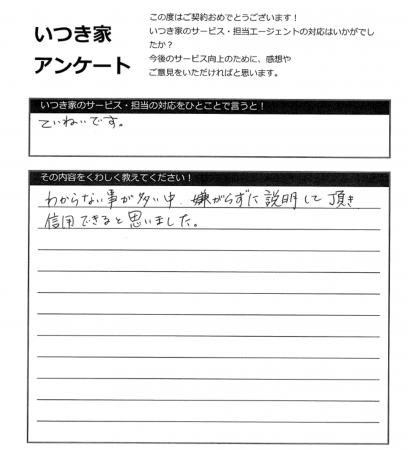 いつき家
アンケート
この度はご契約おめでとうございます！
いつき家のサービス・担当エージェントの対応はいかがでし
たか？
今後のサービス向上のために、感想や
ご意見をいただければと思います。
いつき家のサービス・担当の対応をひとことで言うと！
ていねいです。
その内容をくわしく教えてください！
わからない事が多い中、嫌がらずに説明して頂き
信用できると思いました。